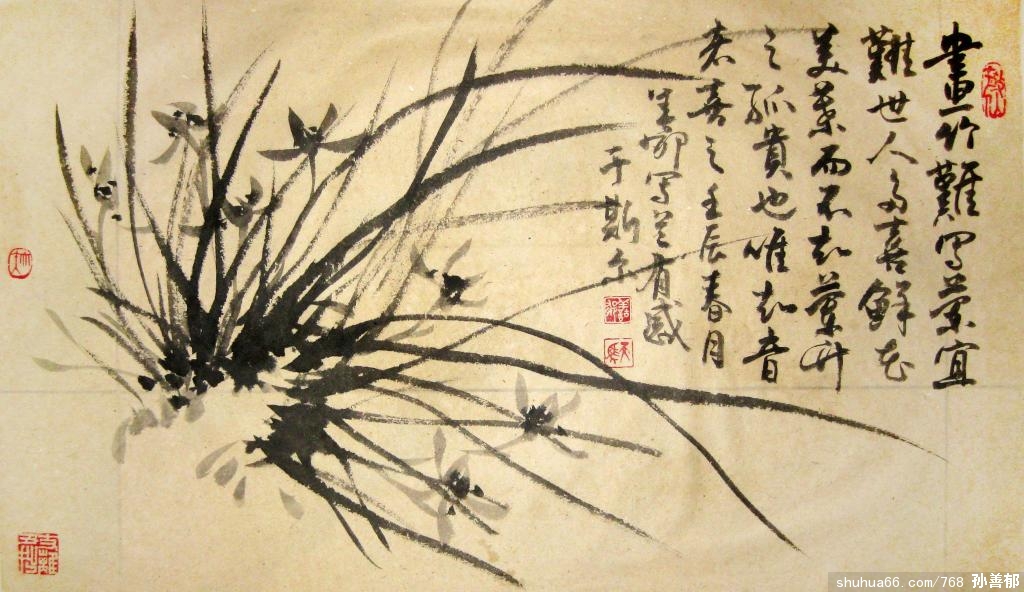 畫竹難写蘭宜
難世人多喜鮮花
美葉而不知蘭
之孤貴也唯知音
者喜之壬辰春月
写兰有感
于斯尔
shuhua66.com/768 孙善郁